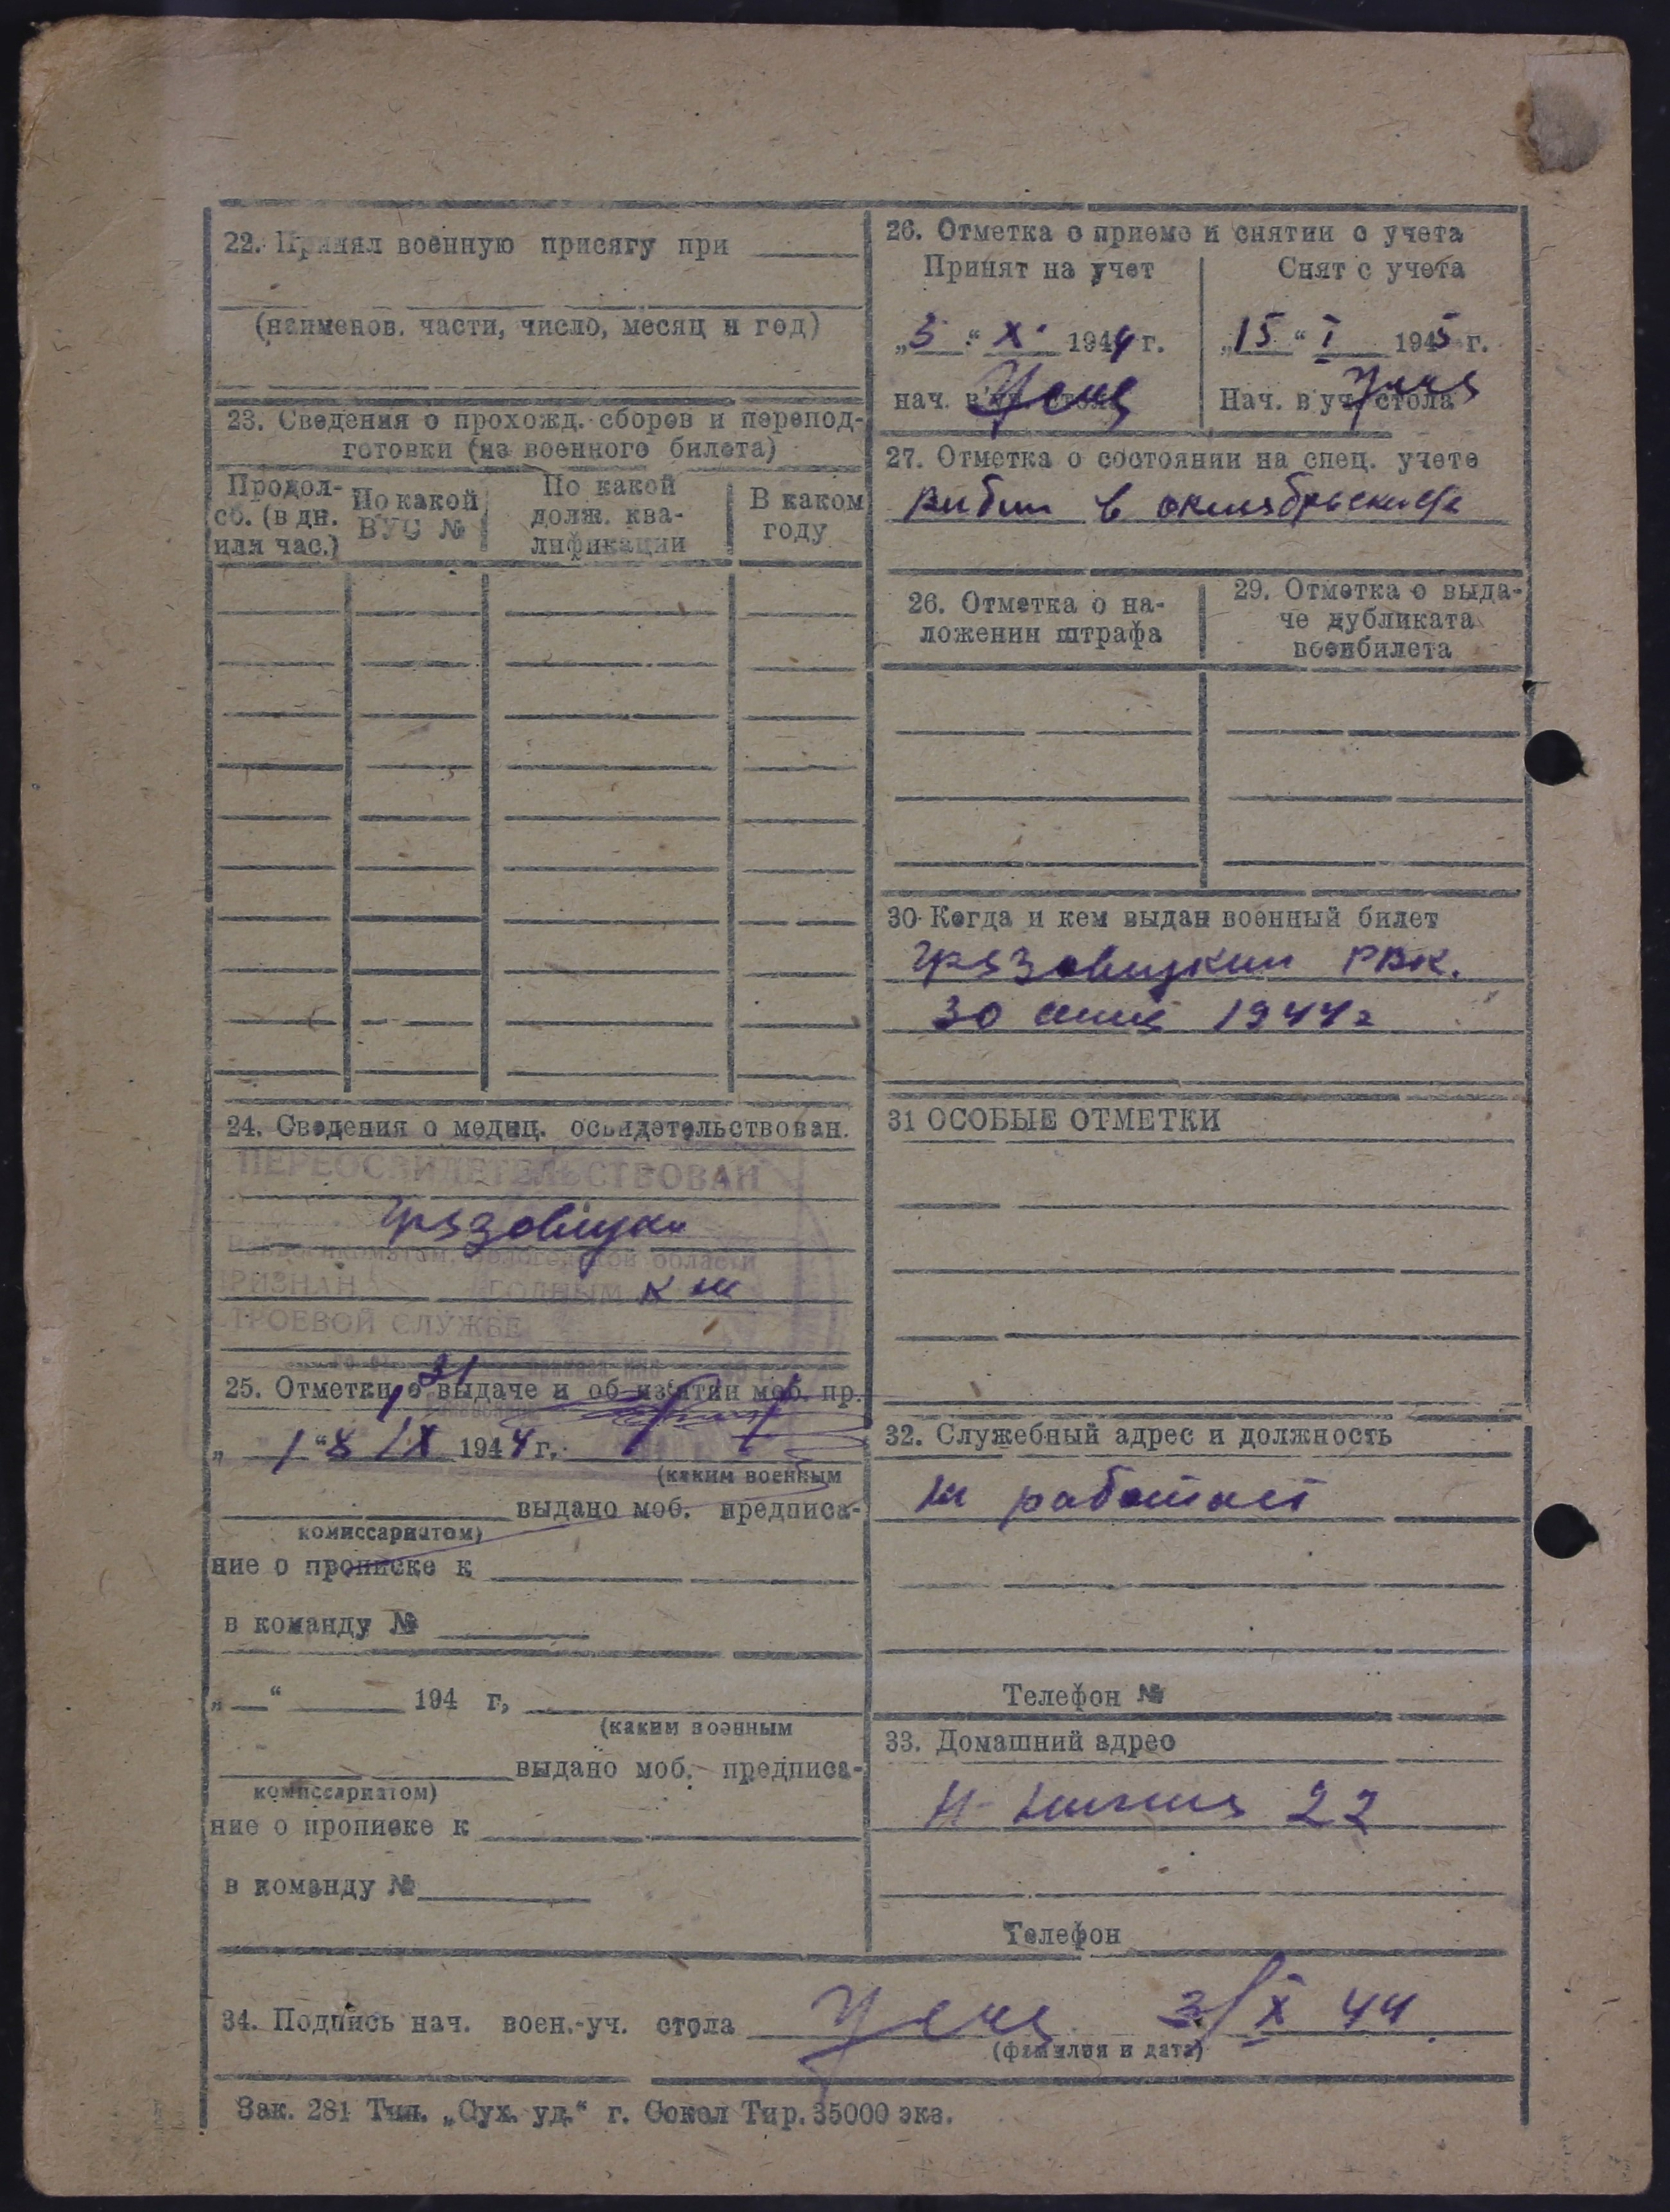 22. Принял военную присягу при
(наименов. части, число, месяц и год)
23. Сведения о прохожд. сборов и перепод-
готовки (из военного билета)
Продол-
сб. (в дн.
или час.)
По какой
ВУС №
По какой
долж. ква-
лификации
В каком
году
24. Сведения о медиц. освидетельствован.
ПЕРЕОСВИДЕТЕЛЬСТВОВАН
Грязовецки
Райвоенкоматом, Вологодской области
РИЗНАН ГОДНЫМ к
ТРОЕВОЙ СЛУЖБЕ
25. Отметки о выдаче и об изятии моб. пр.
1944 г.
(каким военным
выдано моб. предписа-
комиссариатом)
ние о прописке к
в команду №
„ “ 194 г,
(каким военным
выдано моб. предписа-
комиссариатом)
ние о прописке к
в команду №
26. Отметка о приеме и снятии с учета
Принят на учет
„3“ X 1944 г.
нач. в уч. стола
Снят с учета
„15“ I 1945 г.
Нач. в уч. стола
27. Отметка о состоянии на спец. учете
в
26. Отметка о на-
ложении штрафа
29. Отметка о выда-
че дубликата
военбилета
30 Когда и кем выдан военный билет
Грязовецким РВК.
30 1944 г
31 ОСОБЫЕ ОТМЕТКИ
32. Служебный адрес и должность
не работает
Телефон №
33. Домашний адрес
22
Телефон
34. Подпись нач. воен.-уч. стола 3/X 44.
(фамилия и дата)
Зак. 281 Тип. „Сух. уд.“ г. Сокол Тир. 35000 экз.